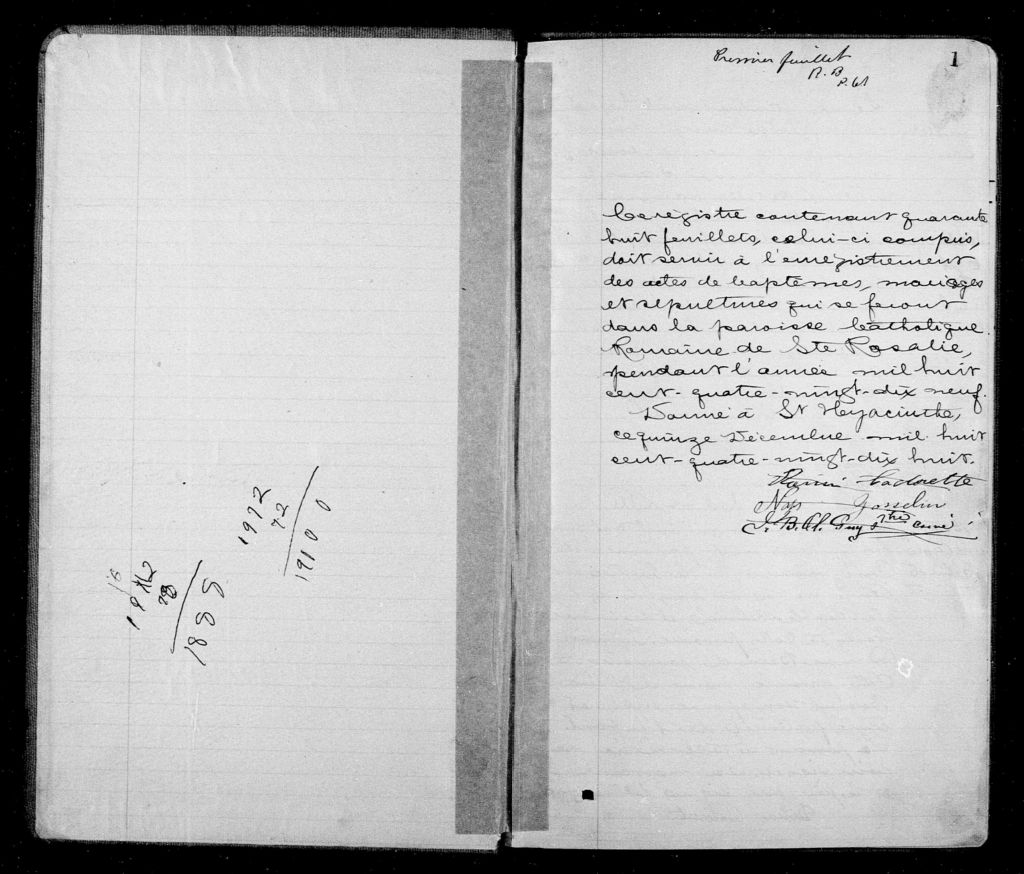 1972
72
1910 0
78
1888
Premier feuillet
R. B
P. 61
1
Ce registre contenant quarante
huit feuillets, celui-ci compris,
doit servir à l'enregistrement
des actes de baptêmes, mariages
et sépultures qui se feront
dans la paroisse Catholique
Romaine de Ste Rosalie,
pendant l'année mil huit
cent-quatre-vingt-dix neuf.
Donné à St Hyacinthe,
ce quinze Décembre mil huit
cent-quatre-vingt-dix huit.
Cadorette
Nap Gosselin
J. B. A. Guy ptre curé